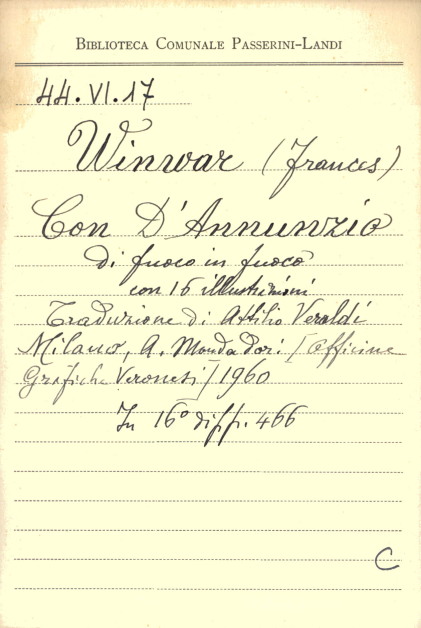 BIBLIOTECA COMUNALE PASSERINI-LANDI
44.VI.17
Winwar (Frances)
Con D'Annunzio
di fuoco in fuoco
con 16 illustrazioni
Traduzione di Attilio Veraldi
Milano, A. Mondadori / Officine
Grafiche Veronesi / 1960
In 16° di pp. 466
C